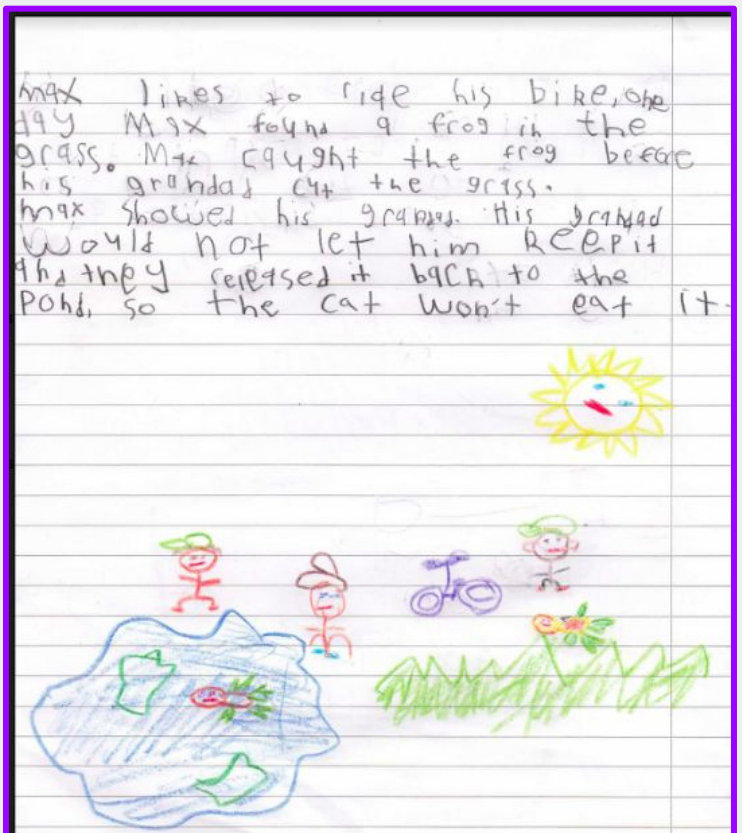 max likes to ride his bike, one
day Max found a frog in the
grass. Max caught the frog before
his grandad cut the grass.
max showed his grandad. His grandad
would not let him keep it
and they released it back to the
pond, so the cat won't eat it.